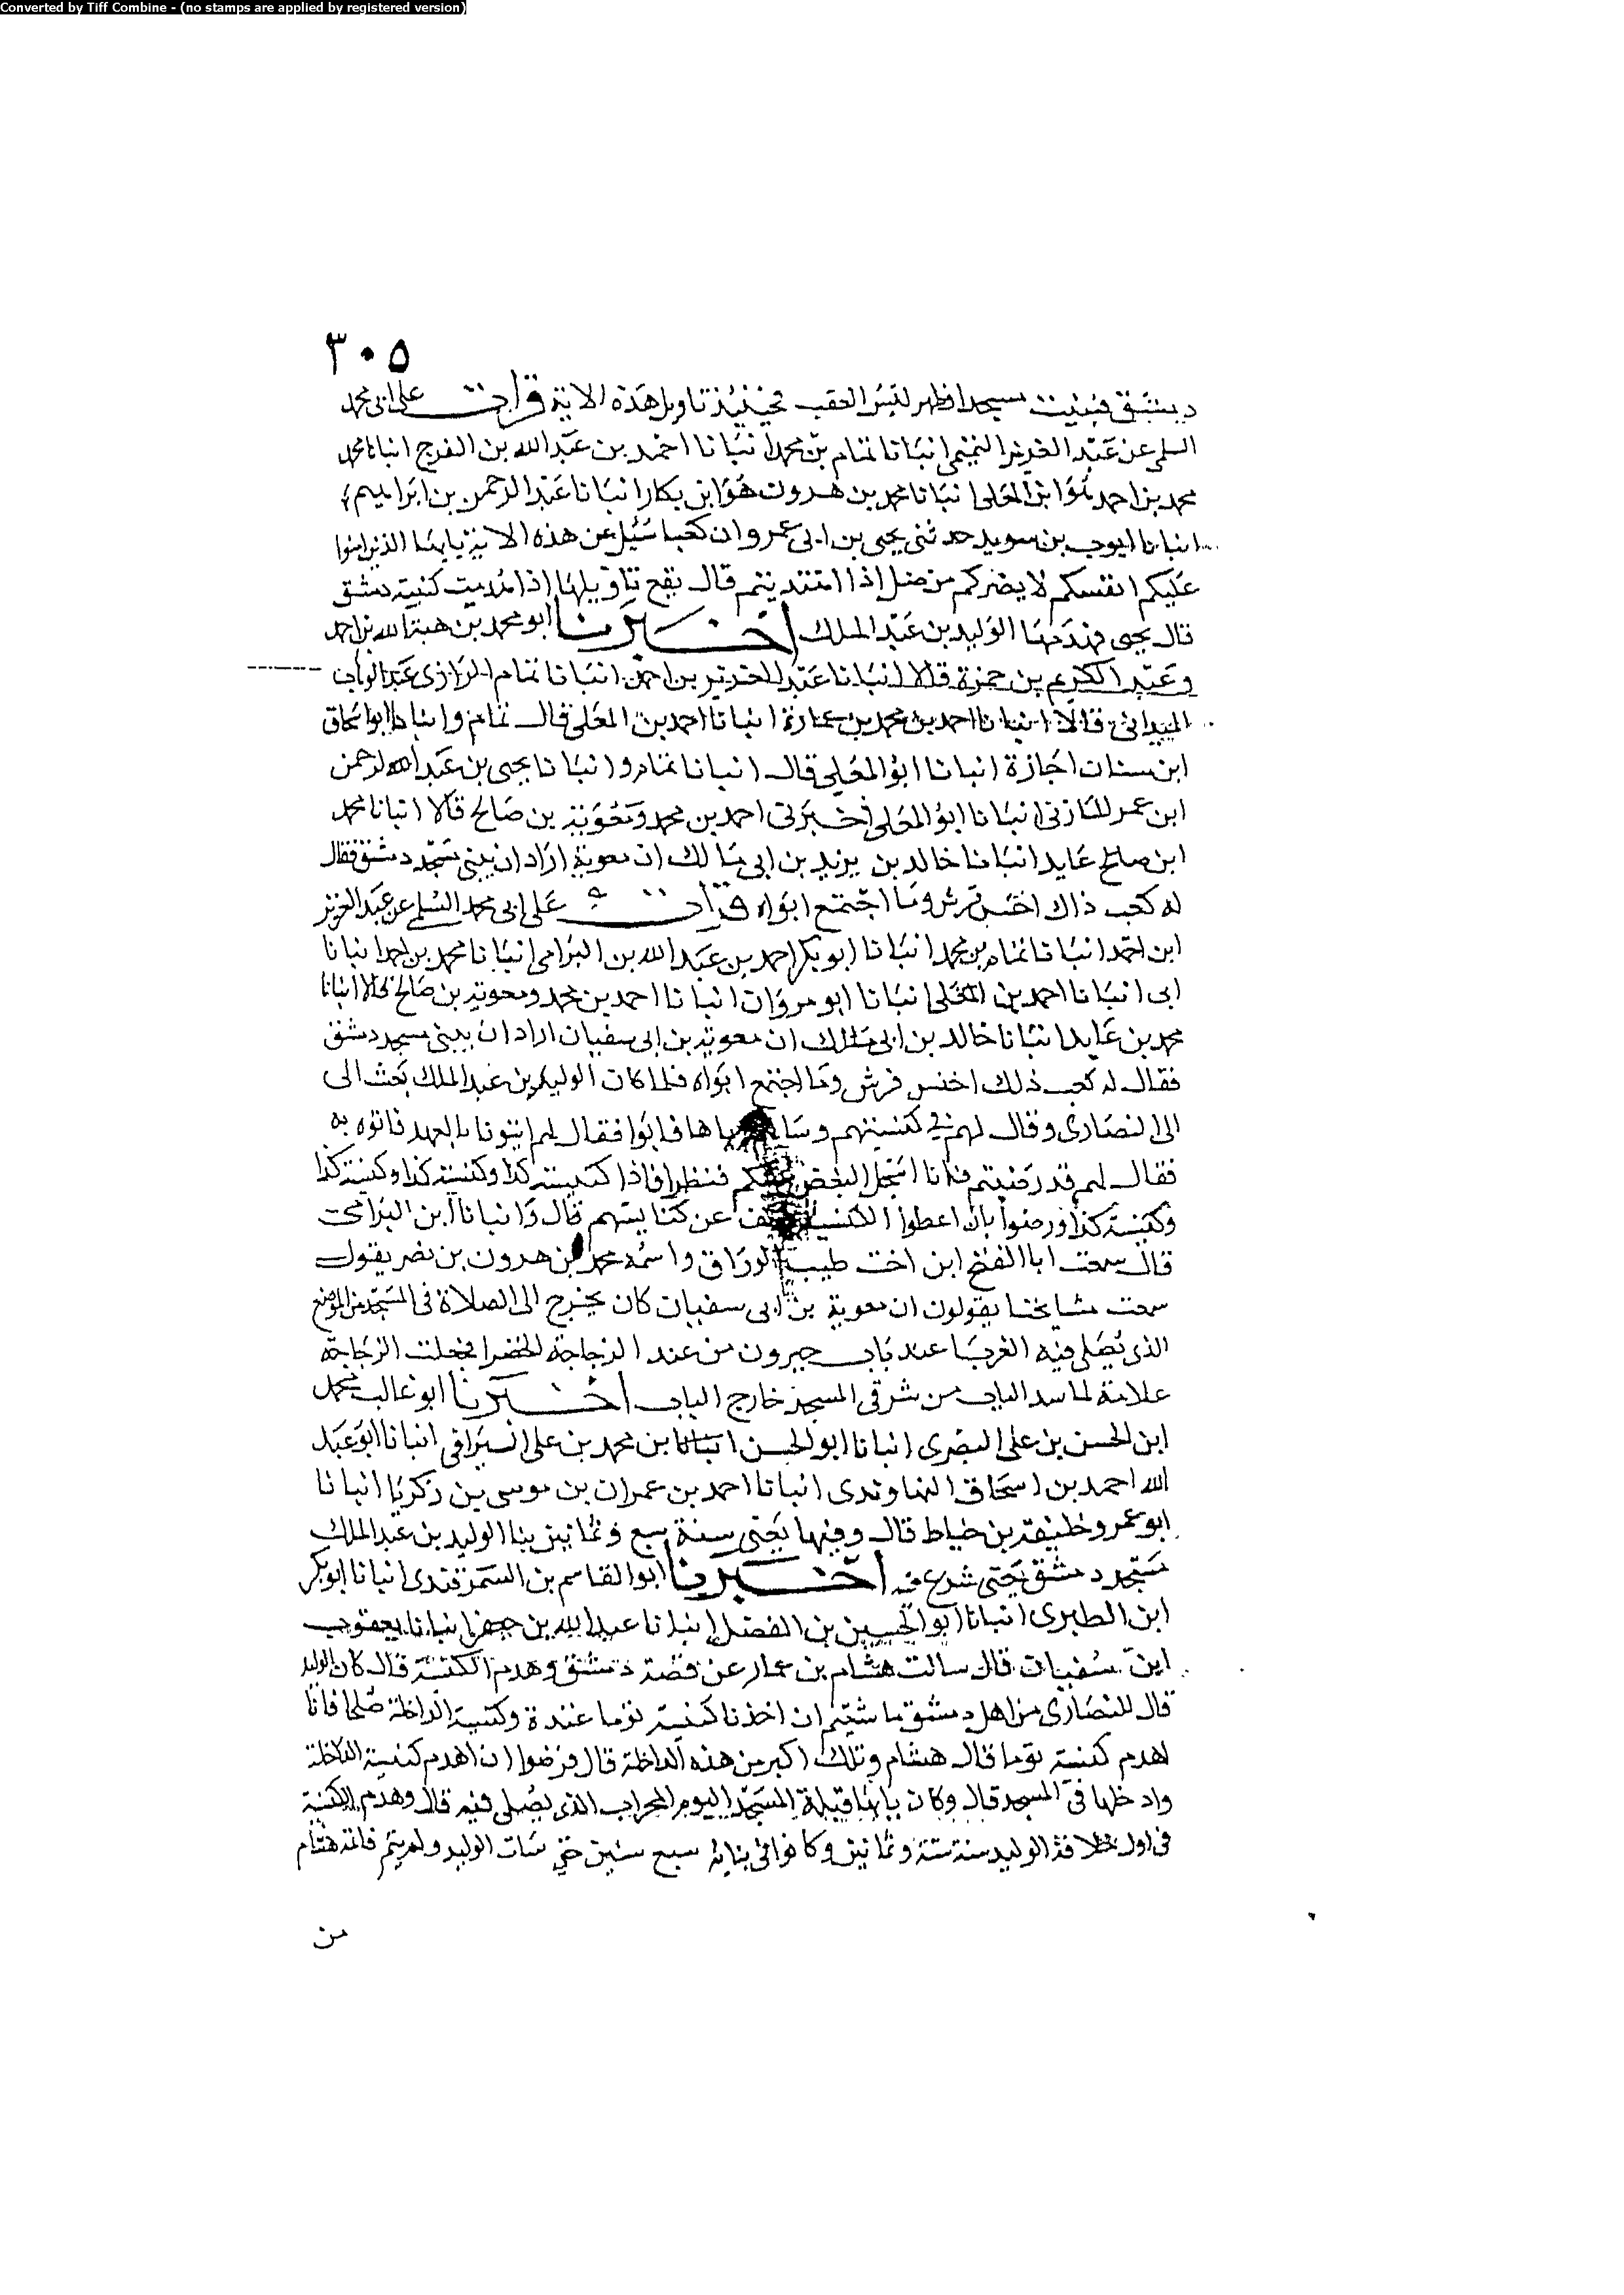 Converted by Tiff Combine - (no stamps are applied by registered version)
٣٠٥
دمشق فبنيت مسجدا فظهر لبس العقب فحينئذ تاويل هذه الاية قرات على ابى محمد
السلمى عن عبد العزيز التميمى انبانا تمام بن محمد انبانا احمد بن عبد الله بن الفرج انبانا محمد
محمد بن احمد هو ابن المعلى انبانا محمد بن هرون هو ابن بكار انبانا عبد الرحمن بن ابراهيم
انبانا ايوب بن سويد حدثنى يحيى بن ابى عمرو ان كعبا سئل عن هذه الاية يايها الذين امنوا
عليكم انفسكم لا يضركم من ضل اذا اهتديتم قال يقع تاويلها اذا هدمت كنيسة دمشق
قال يحيى فهدمها الوليد بن عبد الملك اخبرنا ابو محمد بن هبة الله بن احمد
وعبد الكريم بن حمزة قالا انبانا عبد العزيز بن احمد انبانا تمام الرازى عبد الوهاب
الميدانى قالا انبانا احمد بن محمد بن عمارة انبانا احمد بن المعلى قال تمام وانبانا ابو اسحاق
ابن سنان اجازة انبانا ابو المعلى قال انبانا تمام وانبانا يحيى بن عبد الله الرحمن
ابن عمر المازنى انبانا ابو المعلى اخبرنى احمد بن محمد ومعوية بن صالح قالا انبانا محمد
ابن صالح عايد انبانا خالد بن يزيد بن ابى مالك ان معوية اراد ان يبنى مسجد دمشق فقال
له كعب ذاك اخنس قريش وما اجتمع ابواه قرات على ابى محمد السلمى عن عبد العزيز
ابن احمد انبانا تمام بن محمد انبانا ابو بكر احمد بن عبد الله بن البرامى انبانا محمد بن احمد انبانا
ابى انبانا احمد بن المعلى انبانا ابو مروان انبانا احمد بن محمد ومعوية بن صالح قالا انبانا
محمد بن عايد انبانا خالد بن ابى مالك ان معوية بن ابى سفيان اراد ان يبنى مسجد دمشق
فقال له كعب ذلك اخنس قريش وما اجتمع ابواه فلما كان الوليد بن عبد الملك بعث الى
الى النصارى وقال لهم فى كنيستهم ها فابوا فقال لهم ايتونا بالعهد فاتوه به
فقال لهم قد رضيتم فانا فنظر فاذا كنيسة كذا وكنيسة كذا وكنيسة كذا
وكنيسة كذا ورضوا بان اعطوا عن كنايسهم قال وانبانا ابن البرامى
قال سمعت ابا الفتح ابن اخت طيب الوراق واسمه محمد بن هرون بن نصر يقول
سمعت مشايخنا يقولون ان معوية بن ابى سفيان كان يخرج الى الصلاة فى المسجد من الموضع
الذى يصلى فيه الغربا عند باب جيرون من عند الزجاجة الخضرا فجعلت الزجاجة
علامة لما سد الباب من شرقى المسجد خارج الباب اخبرنا ابو غالب محمد
ابن الحسن بن على البصرى انبانا ابو الحسن انبانا بن محمد بن على السيرافى انبانا ابو عبد
الله احمد بن اسحاق النهاوندى انبانا احمد بن عمران بن موسى بن زكريا انبانا
ابو عمرو خليفة بن خياط قال وفيها يعنى سنة سبع وثمانين بنا الوليد بن عبد الملك
مسجد دمشق يعنى شرع فيه اخبرنا ابو القاسم بن السمرقندى انبانا ابو بكر
ابن الطبرى انبانا ابو الحسين بن الفضل انبانا عبد الله بن جعفر انبانا يعقوب
ابن سفيان قال سالت هشام بن عمار عن قصة دمشق وهدم الكنيسة قال كان الوليد
قال للنصارى من اهل دمشق ما شيتم ان اخذنا كنيسة توما عنوة وكنيسة الداخلة صلحا فانا
اهدم كنيسة توما قال هشام وتلك اكبر من هذه الداخلة قال فرضوا ان اهدم كنيسة الداخلة
وادخلها فى المسجد قال وكان بابها قبلة المسجد اليوم المحراب الذى يصلى فيه قال وهدم الكنيسة
فى اول خلافة الوليد سنة ستة وثمانين وكانوا فى بنائه سبع سنين حتى مات الوليد ولم يتم فاتمه هشام
من